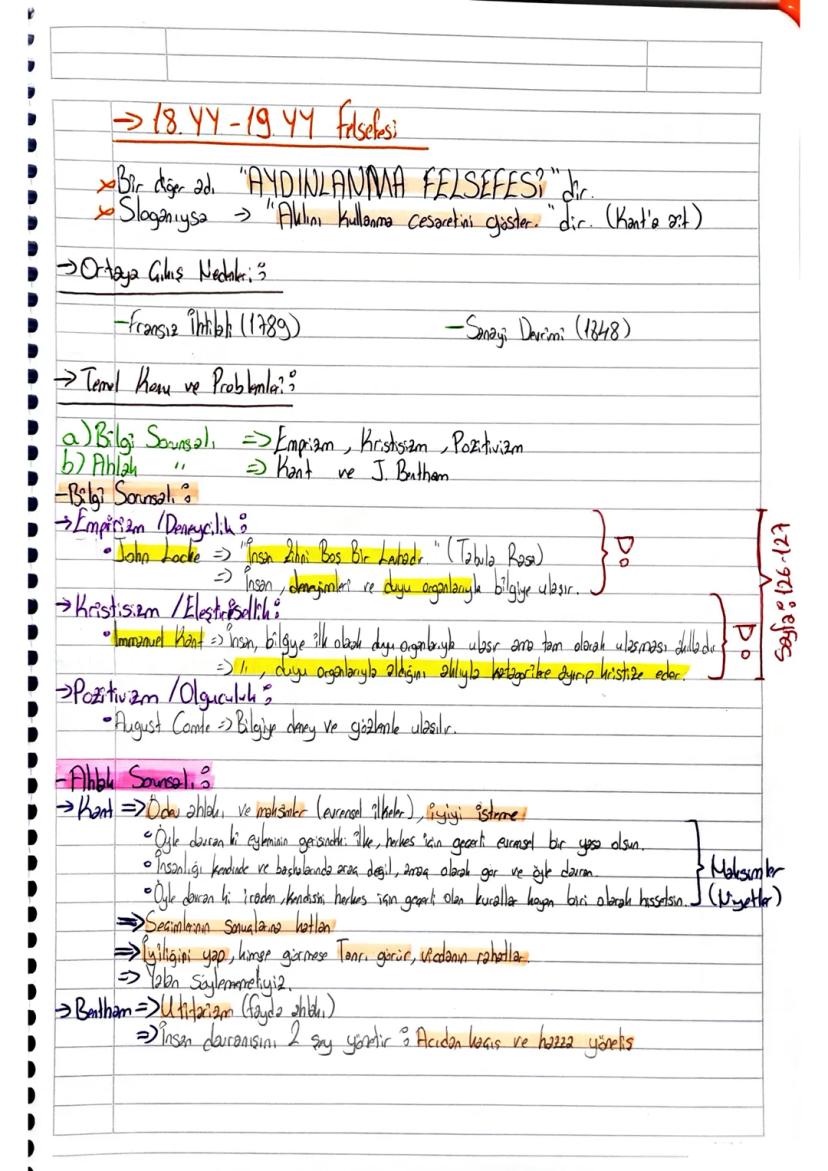 → 18.YY - 19.YY Felsefesi
×Bir diğer adı "AYDINLANMA FELSEFESİ" dir.
×Sloganıysa → "Aklını kullanma cesaretini göster." dir. (Kant'a ait)
→ Ortaya Çıkış Nedenleri:
- Fransız İhtilali (1789) - Sanayi Devrimi (1848)
→ Temel Konu ve Problemleri:
a) Bilgi Sorunsalı => Emprizm, Kristisizm, Pozitivizm
b) Ahlak " => Kant ve J. Bentham
- Bilgi Sorunsalı:
→ Empirizm / Deneycilik:
• John Locke => "İnsan Zihni Boş Bir Levhadır." (Tabula Rasa)
=> İnsan, deneyimleri ve duyu organlarıyla bilgiye ulaşır.
→ Kristisizm / Eleştirisellik:
• Immanuel Kant => İnsan, bilgiye ilk olarak duyu organlarıyla ulaşır ama tam olarak ulaşması akılladır
=> " , duyu organlarıyla aldığını aklıyla kategorilere ayırıp kristize eder.
Sayfa: 126-127
→ Pozitivizm / Olguculuk:
• August Comte => Bilgiye deney ve gözlemle ulaşılır.
- Ahlak Sorunsalı:
→ Kant => Ödev ahlakı ve maksimler (evrensel ilkeler), iyiyi isteme
• Öyle davran ki eyleminin gerisindeki ilke, herkes için geçerli evrensel bir yasa olsun.
• İnsanlığı kendinde ve başkalarında araç değil, amaç olarak gör ve öyle davran.
• Öyle davran ki iraden, kendisini herkes için geçerli olan kurallar koyan biri olarak hissetsin.
Maksimler (Niyetler)
=> Seçimlerinin sonuçlarına katlan
=> İyiliğini yap, kimse görmese Tanrı görür, vicdanın rahatlar.
=> Yalan söylememeliyiz.
→ Bentham => Utitarizm (fayda ahlakı)
=> İnsan davranışını 2 şey yönetir: Acıdan kaçış ve hazza yöneliş